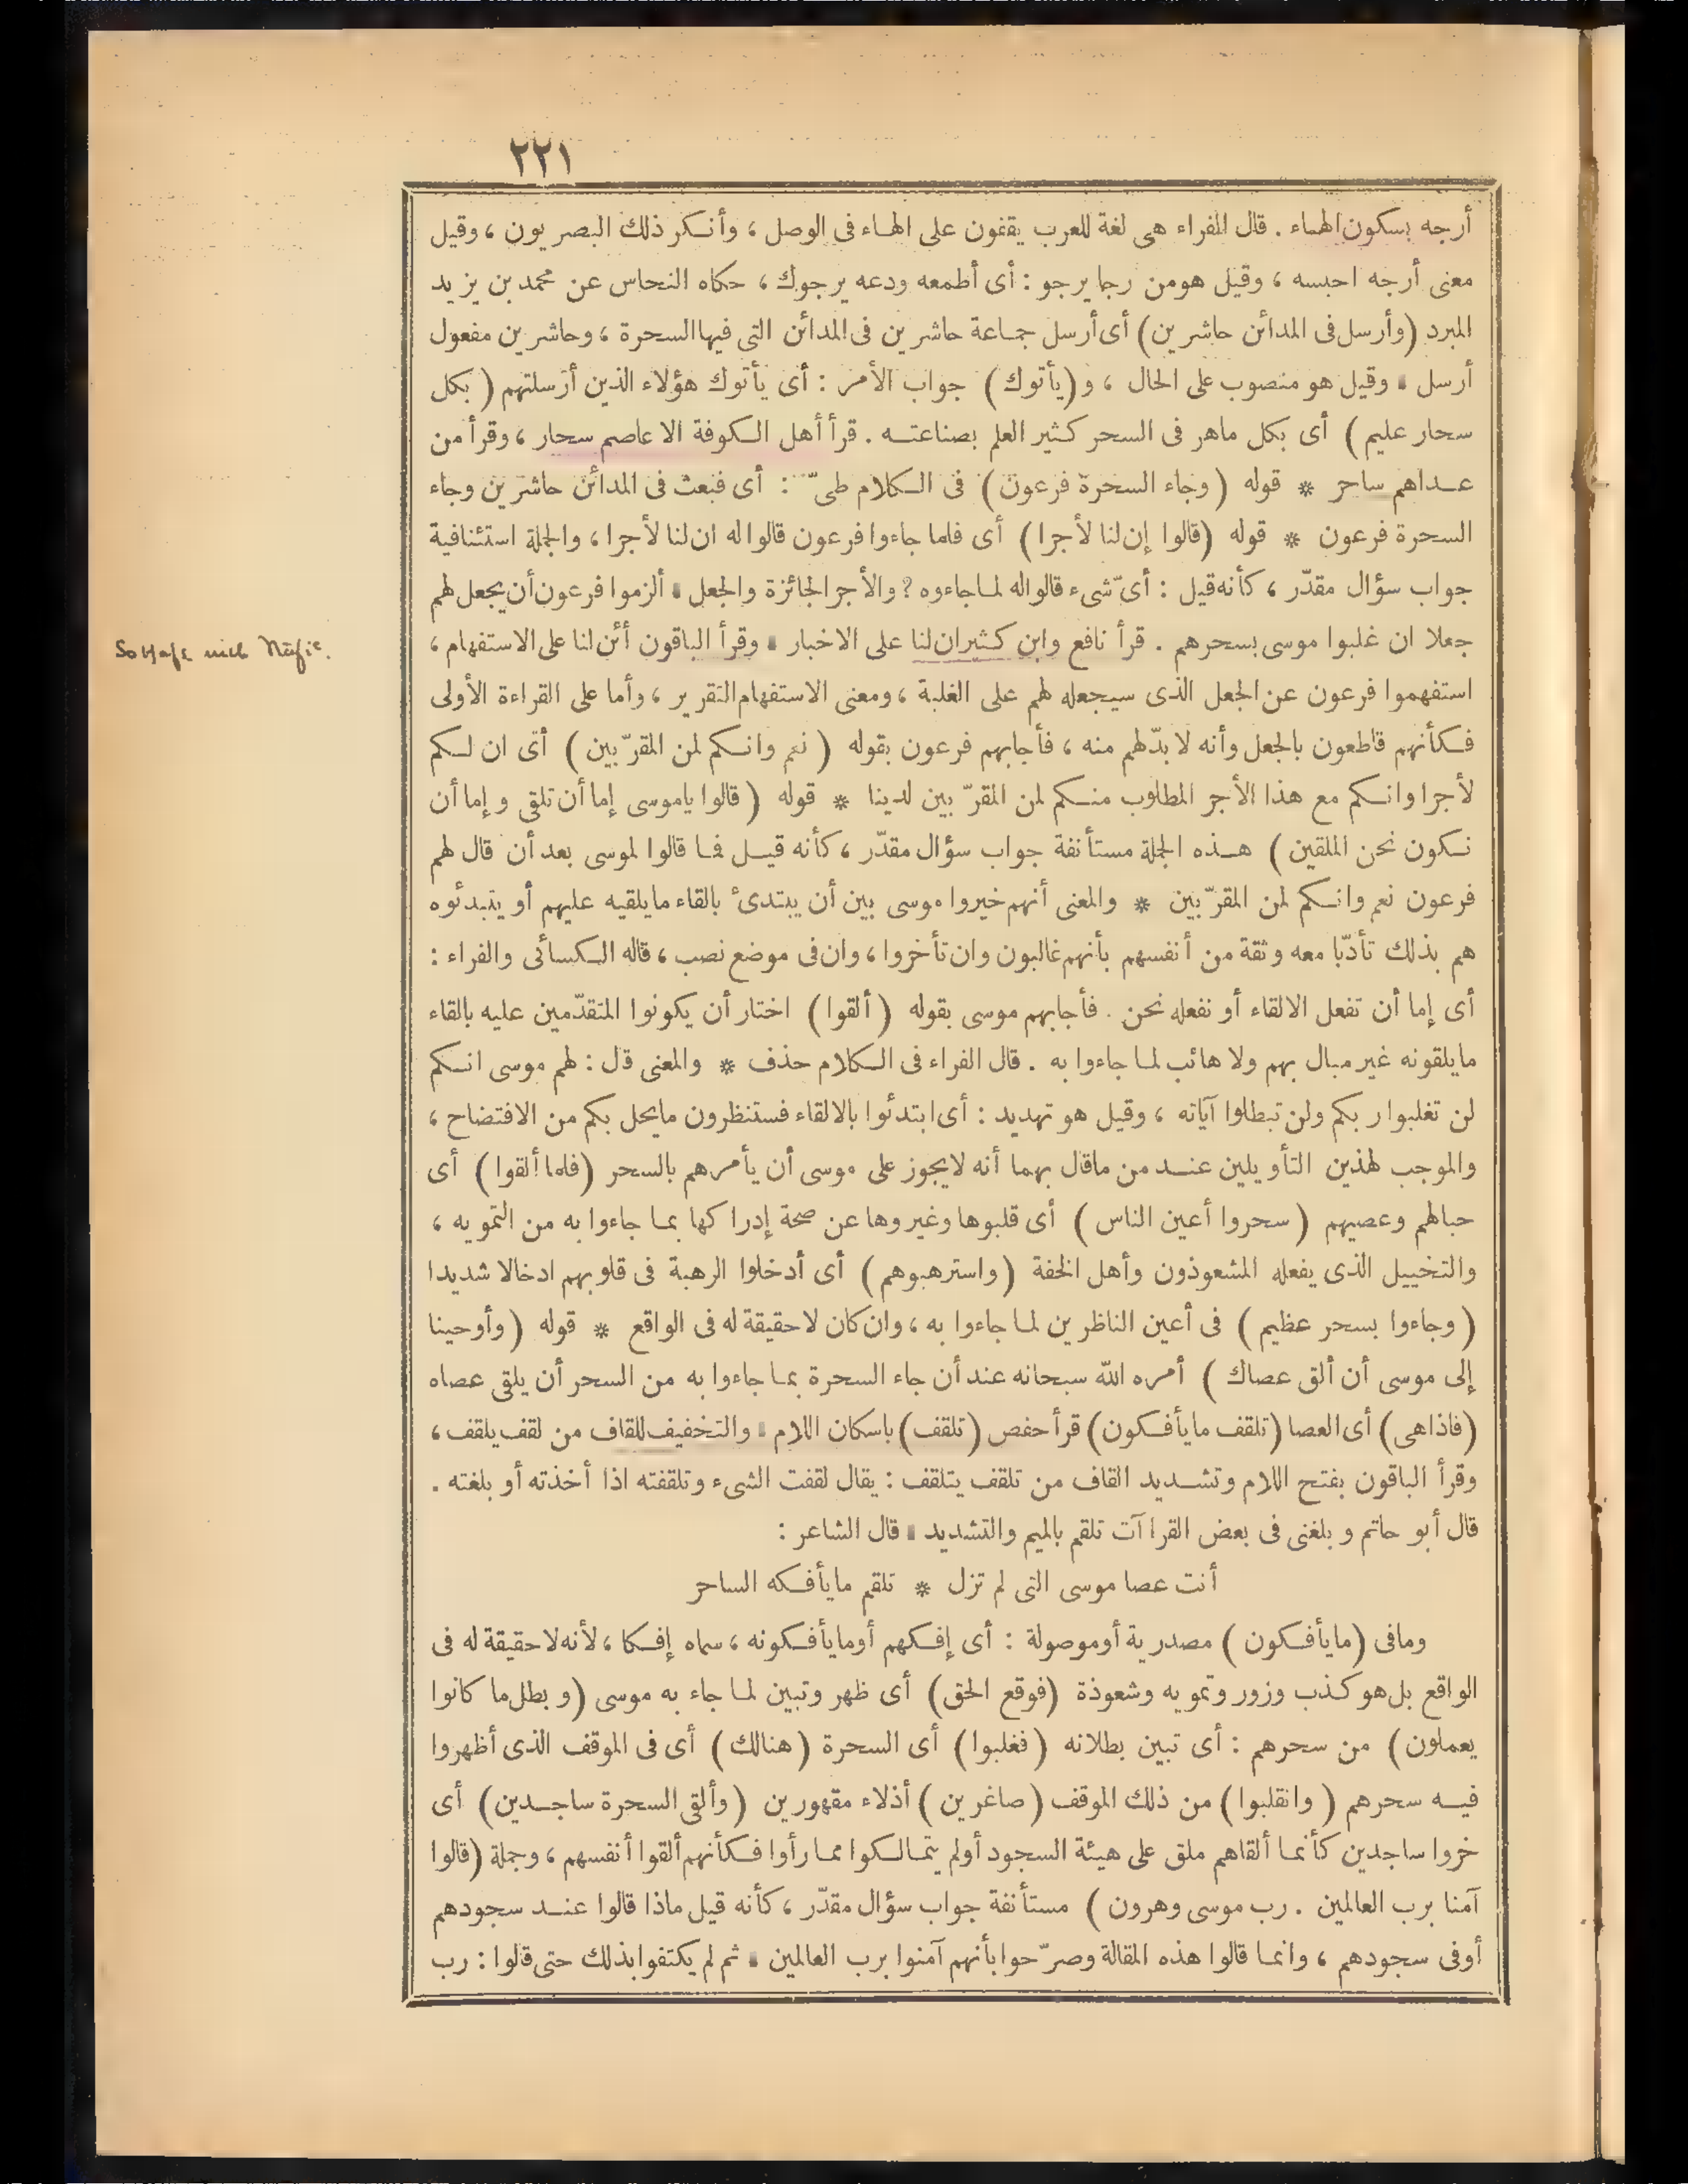 ٢٢١
أرجه بسكون الهاء . قال الفراء هى لغة للعرب يقفون على الهاء فى الوصل ، وأنكر ذلك البصريون ، وقيل
معنى أرجه احبسه ، وقيل هو من رجا يرجو : أى أطمعه ودعه يرجوك ، حكاه النحاس عن محمد بن يزيد
المبرد (وأرسل فى المدائن حاشرين) أى أرسل جماعة حاشرين فى المدائن التى فيها السحرة ، وحاشرين مفعول
أرسل ، وقيل هو منصوب على الحال ، و (يأتوك) جواب الأمر : أى يأتوك هؤلاء الذين أرسلتهم (بكل
سحار عليم) أى بكل ماهر فى السحر كثير العلم بصناعته . قرأ أهل الكوفة الا عاصم سحار ، وقرأ من
عداهم ساحر * قوله (وجاء السحرة فرعون) فى الكلام طىّ : أى فبعث فى المدائن حاشرين وجاء
السحرة فرعون * قوله (قالوا إن لنا لأجرا) أى فلما جاءوا فرعون قالوا له ان لنا لأجرا ، والجلة استئنافية
جواب سؤال مقدّر ، كأنه قيل : أىّ شىء قالوا له لما جاءوه ? والأجر الجائزة والجعل ، ألزموا فرعون أن يجعل لهم
جعلا ان غلبوا موسى بسحرهم . قرأ نافع وابن كثير ان لنا على الاخبار ، وقرأ الباقون أئن لنا على الاستفهام ،
استفهموا فرعون عن الجعل الذى سيجعله لهم على الغلبة ، ومعنى الاستفهام التقرير ، وأما على القراءة الأولى
فكأنهم قاطعون بالجعل وأنه لا بدّ لهم منه ، فأجابهم فرعون بقوله (نعم وانكم لمن المقرّبين) أى ان لكم
لأجرا وانكم مع هذا الأجر المطلوب منكم لمن المقرّبين لدينا * قوله (قالوا ياموسى إما أن تلقى وإما أن
نكون نحن الملقين) هذه الجلة مستأنفة جواب سؤال مقدّر ، كأنه قيل فما قالوا لموسى بعد أن قال لهم
فرعون نعم وانكم لمن المقرّبين * والمعنى أنهم خيروا موسى بين أن يبتدئ بالقاء ما يلقيه عليهم أو يبتدئوه
هم بذلك تأدّبا معه وثقة من أنفسهم بأنهم غالبون وان تأخروا ، وان فى موضع نصب ، قاله الكسائى والفراء :
أى إما أن تفعل الالقاء أو نفعله نحن . فأجابهم موسى بقوله (ألقوا) اختار أن يكونوا المتقدّمين عليه بالقاء
ما يلقونه غير مبال بهم ولا هائب لما جاءوا به . قال الفراء فى الكلام حذف * والمعنى قال : لهم موسى انكم
لن تغلبوا ربكم ولن تبطلوا آياته ، وقيل هو تهديد : أى ابتدئوا بالالقاء فستنظرون ما يحل بكم من الافتضاح ،
والموجب لهذين التأويلين عند من ماقال بهما أنه لا يجوز على موسى أن يأمرهم بالسحر (فلما ألقوا) أى
حبالهم وعصيهم (سحروا أعين الناس) أى قلبوها وغيروها عن صحة إدراكها بما جاءوا به من التمويه ،
والتخييل الذى يفعله المشعوذون وأهل الخفة (واسترهبوهم) أى أدخلوا الرهبة فى قلوبهم ادخالا شديدا
(وجاءوا بسحر عظيم) فى أعين الناظرين لما جاءوا به ، وان كان لا حقيقة له فى الواقع * قوله (وأوحينا
إلى موسى أن ألق عصاك) أمره الله سبحانه عند أن جاء السحرة بما جاءوا به من السحر أن يلقى عصاه
(فاذا هى) أى العصا (تلقف ما يأفكون) قرأ حفص (تلقف) باسكان اللام ، والتخفيف للقاف من لقف يلقف ،
وقرأ الباقون بفتح اللام وتشديد القاف من تلقف يتلقف : يقال لقفت الشىء وتلقفته اذا أخذته أو بلغته .
قال أبو حاتم وبلغنى فى بعض القراآت تلقم بالميم والتشديد ، قال الشاعر :
أنت عصا موسى التى لم تزل * تلقم ما يأفكه الساحر
وما فى (ما يأفكون) مصدرية أو موصولة : أى إفكهم أو ما يأفكونه ، سماه إفكا ، لأنه لا حقيقة له فى
الواقع بل هو كذب وزور وتمويه وشعوذة (فوقع الحق) أى ظهر وتبين لما جاء به موسى (وبطل ما كانوا
يعملون) من سحرهم : أى تبين بطلانه (فغلبوا) أى السحرة (هنالك) أى فى الموقف الذى أظهروا
فيه سحرهم (وانقلبوا) من ذلك الموقف (صاغرين) أذلاء مقهورين (وألقى السحرة ساجدين) أى
خروا ساجدين كأنما ألقاهم ملق على هيئة السجود أو لم يتمالكوا مما رأوا فكأنهم ألقوا أنفسهم ، وجلة (قالوا
آمنا برب العالمين . رب موسى وهرون) مستأنفة جواب سؤال مقدّر ، كأنه قيل ماذا قالوا عند سجودهم
أو فى سجودهم ، وانما قالوا هذه المقالة وصرّحوا بأنهم آمنوا برب العالمين ، ثم لم يكتفوا بذلك حتى قالوا : رب